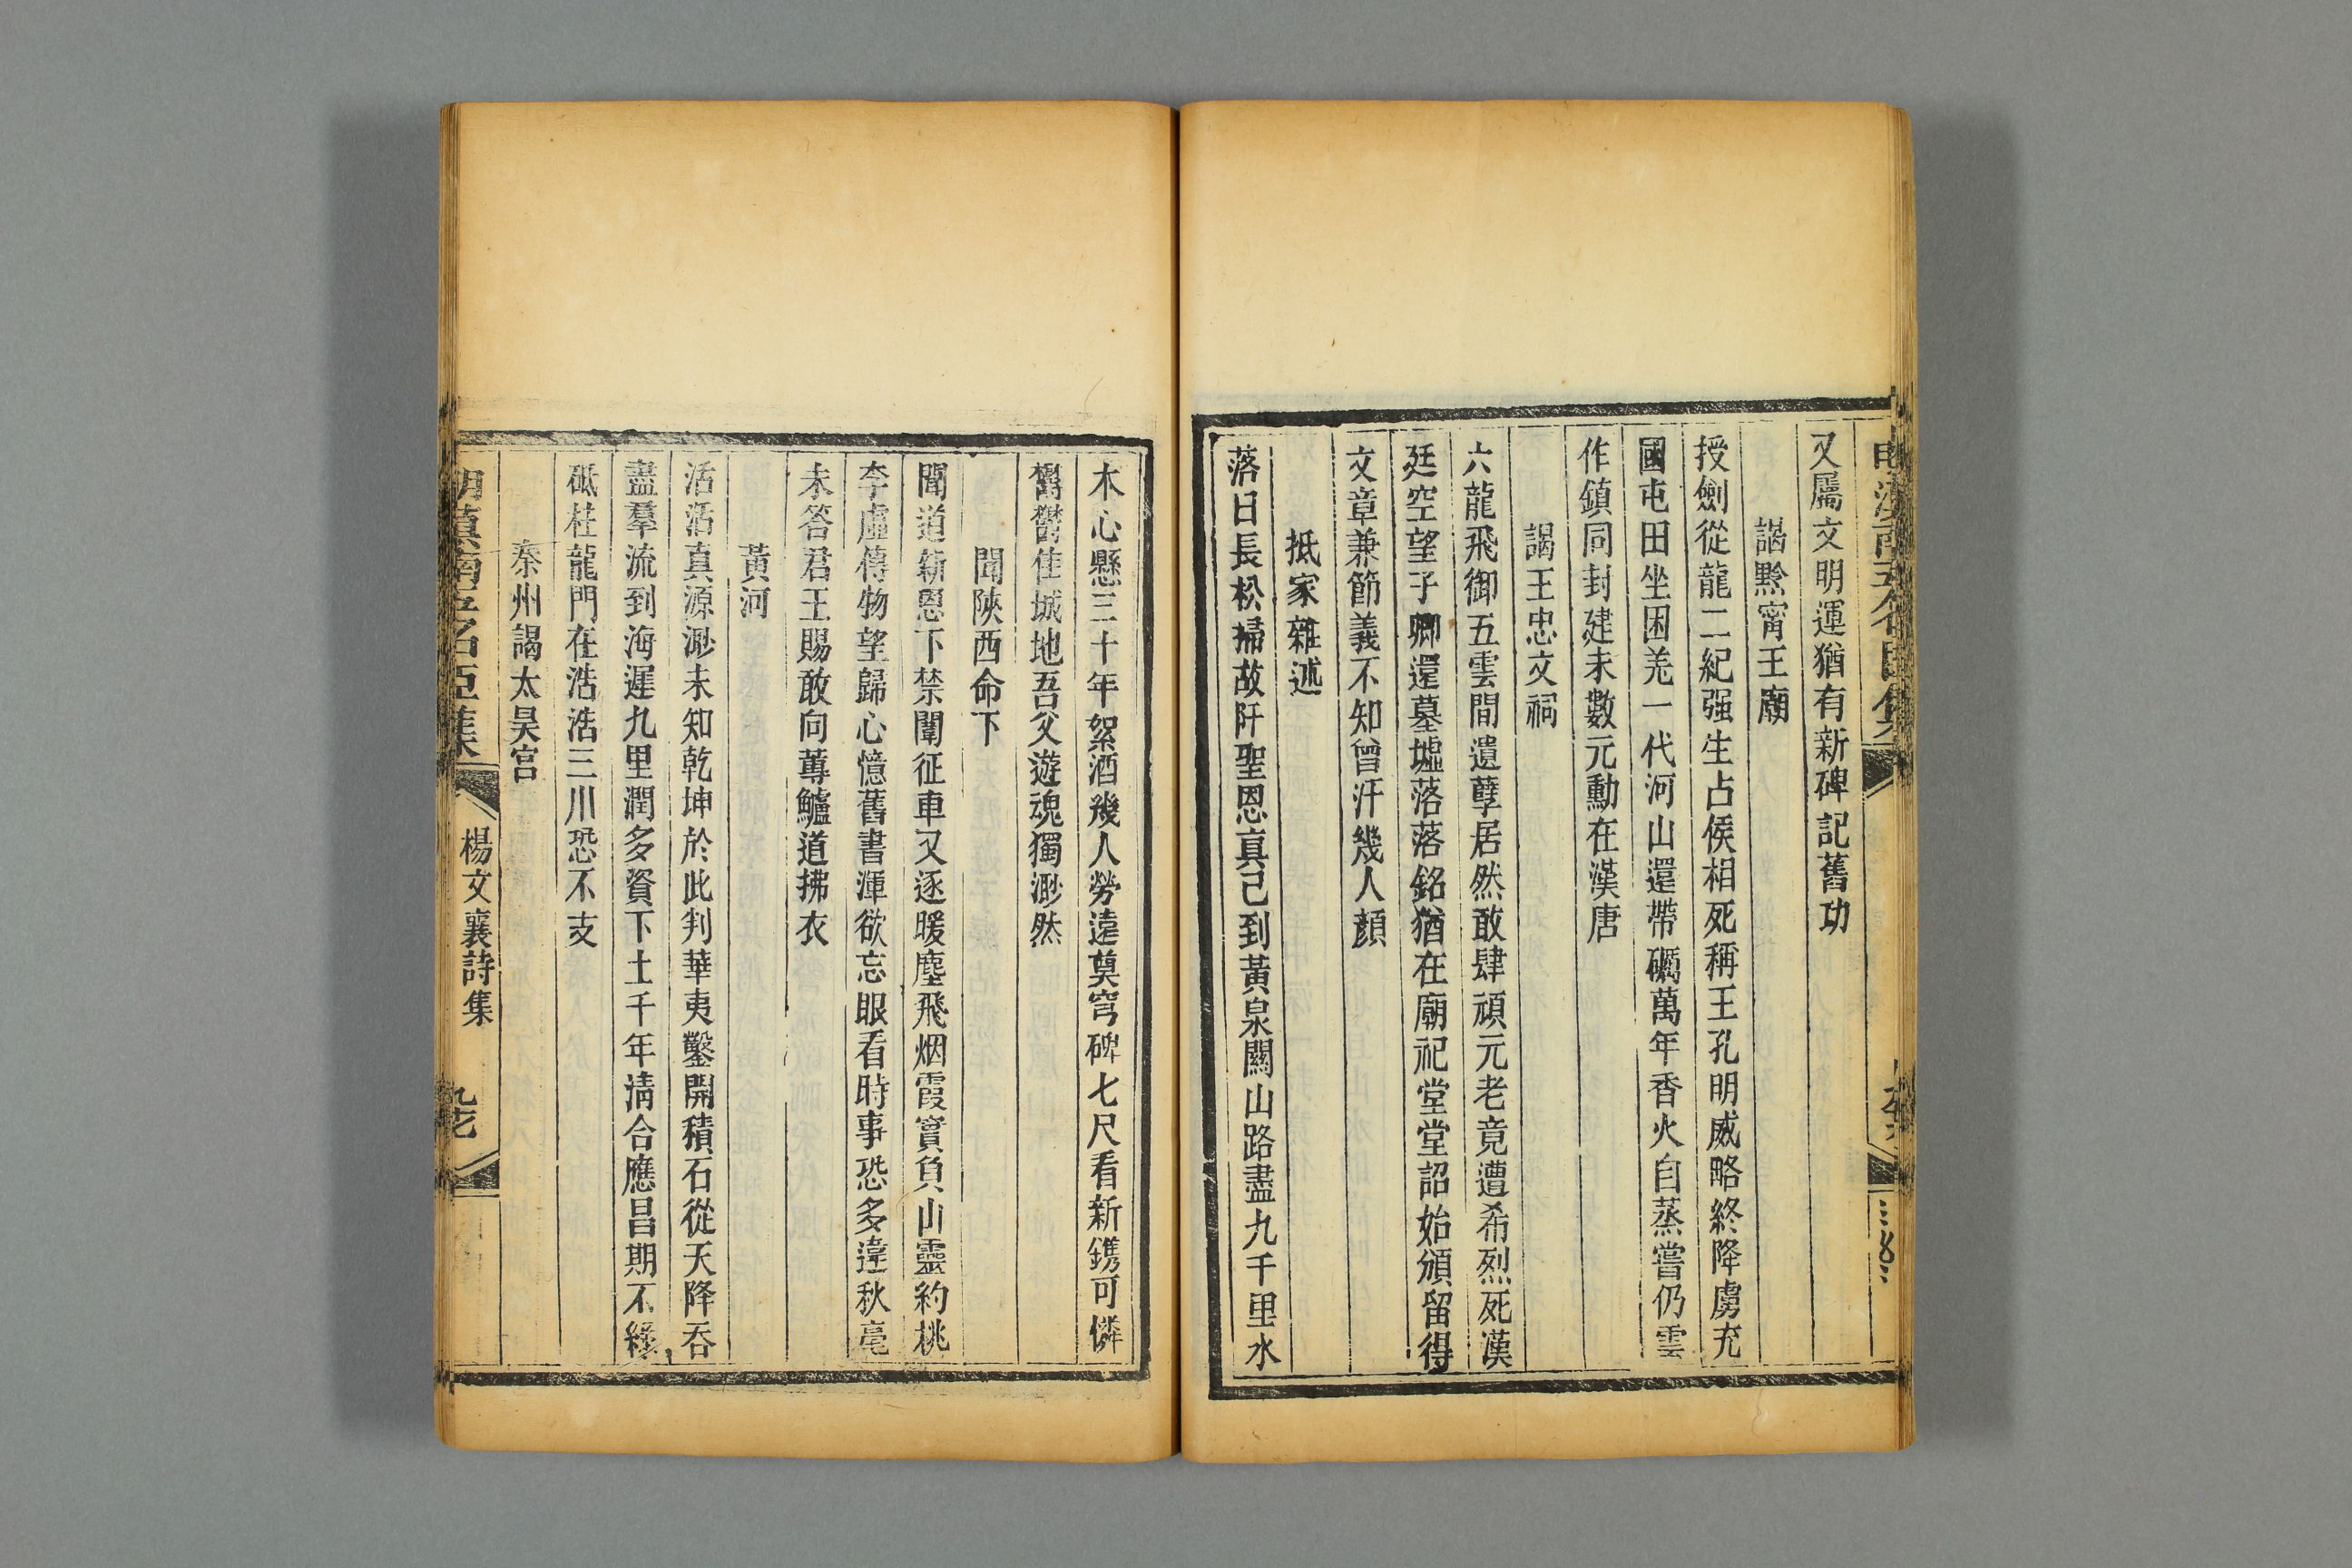 又屬文明運猶有新碑記舊功
謁黔寧王廟
授劍從龍二紀强生占侯相死稱王孔明威略終降虜充
國屯田坐困羌一代河山還帶礪萬年香火自蒸嘗仍雲
作鎮同封建未數元勳在漢唐
謁王忠文祠
六龍飛御五雲間遺孽居然敢肆頑元老竟遭希烈死漢
廷空望子卿還墓墟落落銘猶在廟祀堂堂詔始頒留得
文章兼節義不知曾汗幾人顏
抵家雜述
落日長松掃故阡聖恩真已到黃泉關山路盡九千里水
木心懸三十年絮酒幾人勞遠奠穹碑七尺看新鐫可憐
鬱鬱佳城地吾父遊魂獨渺然
聞陝西命下
聞道新恩下禁闈征車又逐暖塵飛烟霞實負山靈約桃
李虛傳物望歸心憶舊書渾欲忘眼看時事恐多違秋毫
未答君王賜敢向蓴鱸道拂衣
黃河
活活真源渺未知乾坤於此判華夷鑿開積石從天降吞
盡羣流到海遲九里潤多資下土千年淸合應昌期不緣
砥柱龍門在浩浩三川恐不支
秦州謁太昊宮
明滇南五名臣集
楊文襄詩集